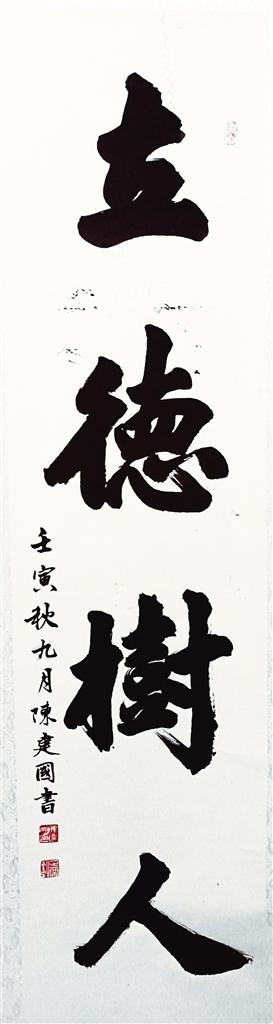 立德樹人
壬寅秋九月陳建國書